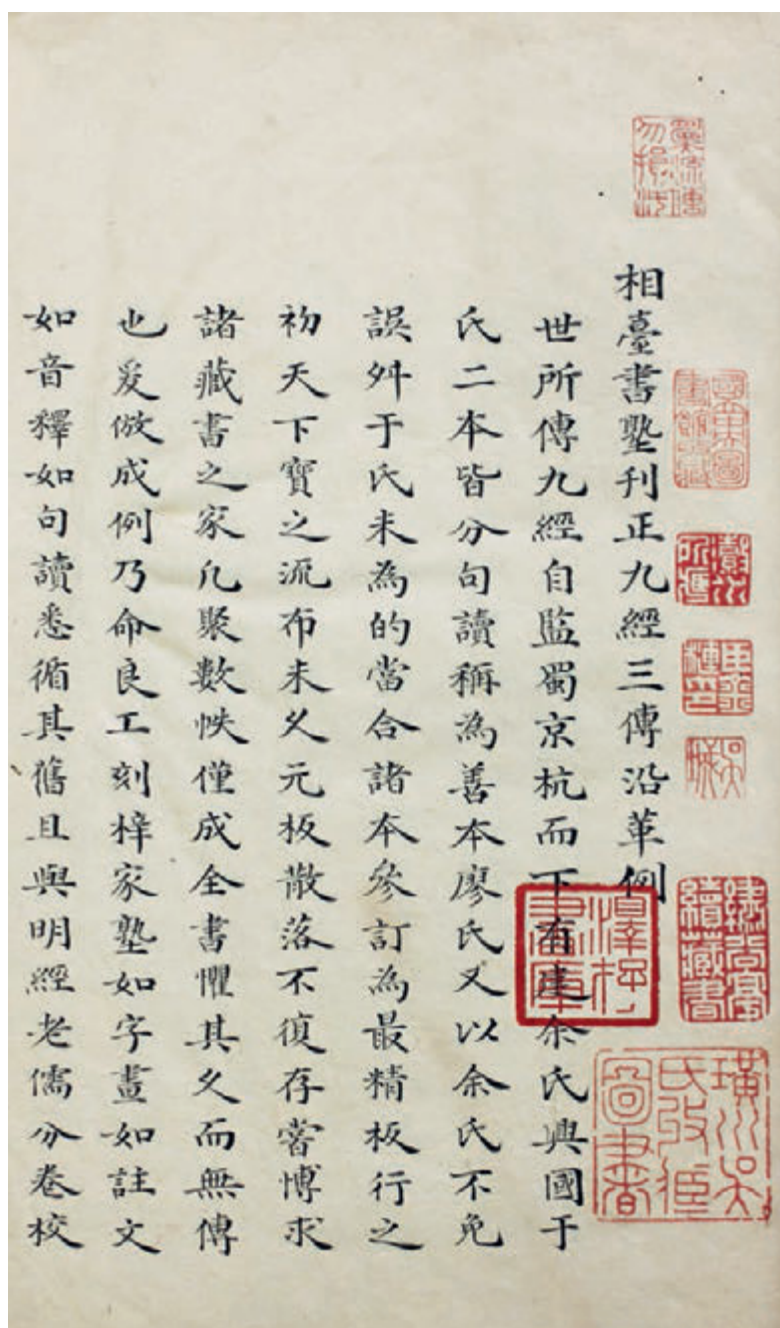 相臺書塾刊正九經三傳沿革例
世所傳九經自監蜀京杭而下有建余氏興國于
氏二本皆分句讀稱為善本廖氏又以余氏不免
誤舛于氏未為的當合諸本參訂為最精板行之
初天下寶之流布未久元板散落不復存嘗博求
諸藏書之家凡聚數帙僅成全書懼其久而無傳
也爰倣成例乃命良工刻梓家塾如字畫如註文
如音釋如句讀悉循其舊且與明經老儒分卷校
璜川吳氏收藏圖書